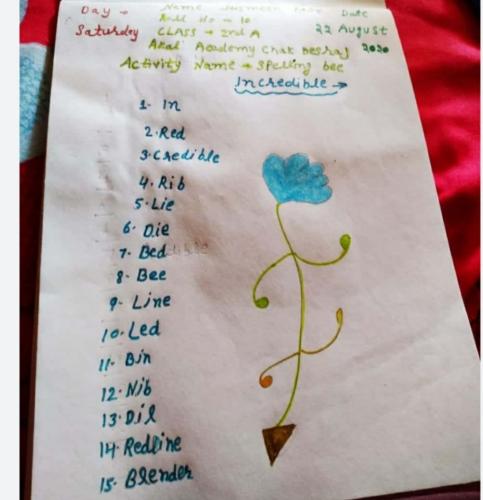 Day → Name Date
Roll No → 10
Saturday CLASS → 2nd A 22 August
Akal Academy Chak Desraj 2020
Activity Name → Spelling bee
Incredible →
1- In
2. Red
3. Credible
4. Rib
5. Lie
6. Die
7. Bed
8- Bee
9- Line
10. Led
11. Bin
12. Nib
13. Dil
14. Redline
15. Blender